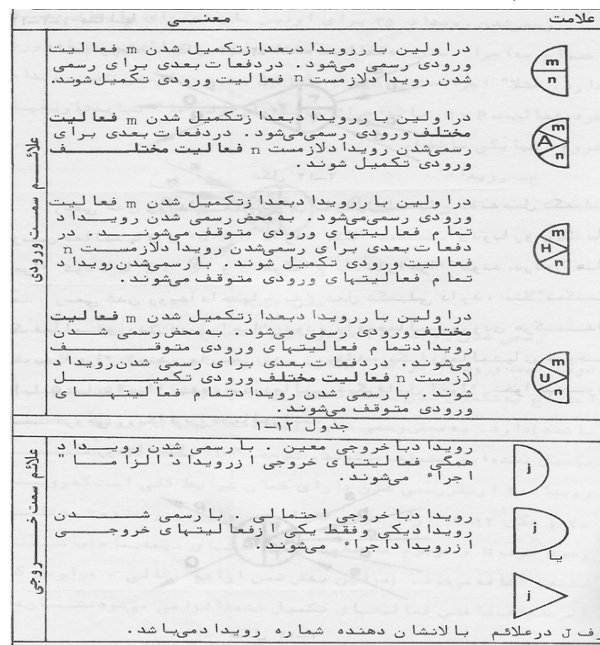 علامت
معنــی
علائـم سمت ورودی
m
n
دراولین باررویداد بعدازتکمیل شدن m فعالیت
ورودی رسمی میشود. دردفعات بعدی برای رسمی
شدن رویداد لازمست n فعالیت ورودی تکمیل شوند.
m
A
n
دراولین باررویداد بعدازتکمیل شدن m فعالیت
مختلف ورودی رسمی میشود. دردفعات بعدی برای
رسمی شدن رویداد لازمست n فعالیت مختلف
ورودی تکمیل شوند.
m
H
n
دراولین باررویداد بعدازتکمیل شدن m فعالیت
ورودی رسمی میشود. به محض رسمی شدن رویداد
تمام فعالیتهای ورودی متوقف میشوند. در
دفعات بعدی برای رسمی شدن رویداد لازمست n
فعالیت ورودی تکمیل شوند. بارسمی شدن رویداد
تمام فعالیتهای ورودی متوقف میشوند.
m
U
n
دراولین باررویداد بعدازتکمیل شدن m فعالیت
مختلف ورودی رسمی میشود. به محض رسمی شدن
رویداد تمام فعالیتهای ورودی متوقف
میشوند. دردفعات بعدی برای رسمی شدن رویداد
لازمست n فعالیت مختلف ورودی تکمیل
شوند. بارسمی شدن رویداد تمام فعالیتهای
ورودی متوقف میشوند.
جدول ۱۲-۱
علائم سمت خـروجی
i
رویداد باخروجی معین. بارسمی شدن رویداد
همگی فعالیتهای خروجی ازرویداد "الزاماً"
اجراء میشوند.
i
یا
i
رویداد باخروجی احتمالی. بارسمی شدن
رویداد یکی وفقط یکی ازفعالیتهای خروجی
ازرویداد اجراء میشوند.
رف J درعلائم بالانشان دهنده شماره رویداد میباشد.